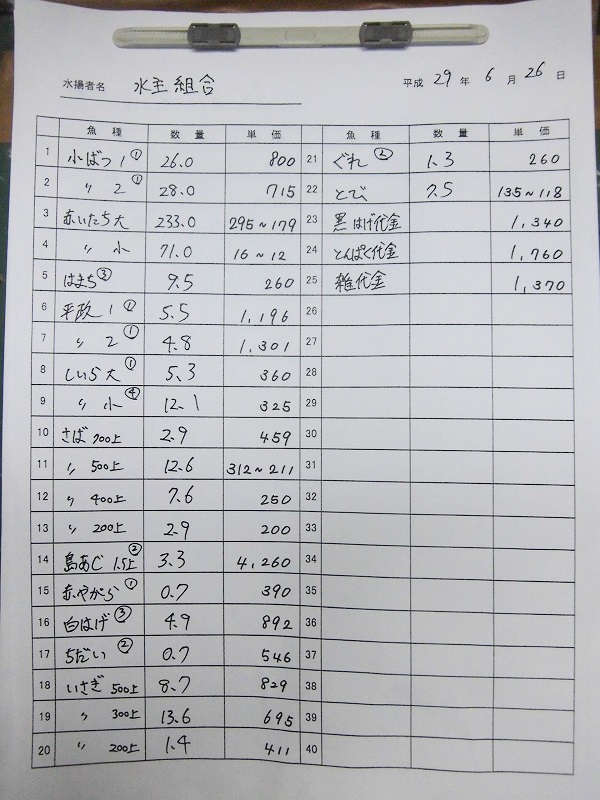 水揚者名 水主組合 平成 29 年 6 月 26 日
魚種 数量 単価 魚種 数量 単価
1 小ばつ 1 ① 26.0 800 21 ぐれ ② 1.3 260
2 〃 2 ① 28.0 715 22 とび 7.5 135~118
3 赤いたち大 233.0 295~179 23 黒はげ代金 1,340
4 〃 小 71.0 16~12 24 とんぱく代金 1,760
5 はまち ③ 9.5 260 25 雑代金 1,370
6 平政 1 ① 5.5 1,196 26
7 〃 2 ① 4.8 1,301 27
8 しいら大 ① 5.3 360 28
9 〃 小 ④ 12.1 325 29
10 さば 700上 2.9 459 30
11 〃 500上 12.6 312~211 31
12 〃 400上 7.6 250 32
13 〃 200上 2.9 200 33
14 島あじ 1.5上 ② 3.3 4,260 34
15 赤やがら ① 0.7 390 35
16 白はげ ③ 4.9 892 36
17 ちだい ② 0.7 546 37
18 いさぎ 500上 8.7 829 38
19 〃 300上 13.6 695 39
20 〃 200上 1.4 411 40